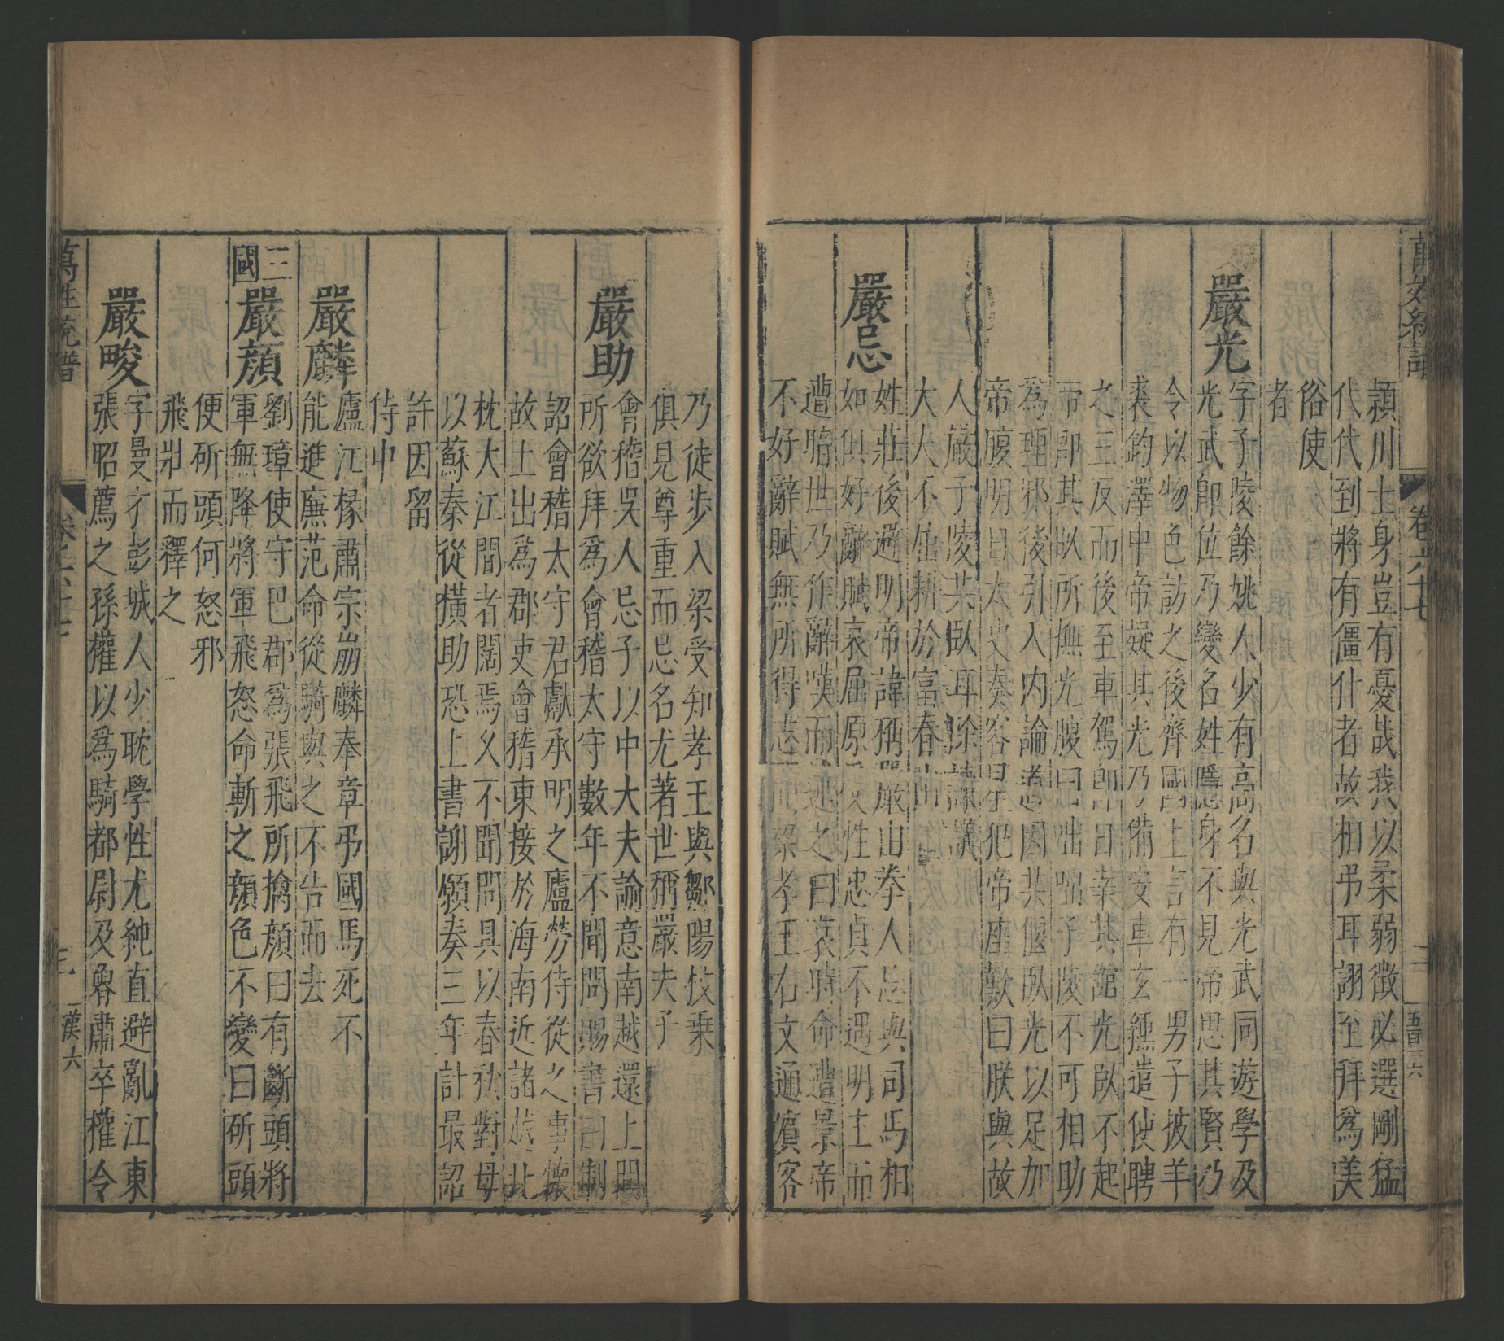 萬姓統譜
卷六十七
二
潁川士身豈有憂哉我以柔弱徵必選剛猛
代代到將有僵仆者故相弔耳詡至拜爲美
俗使
者
嚴光
字子陵餘姚人少有高名與光武同遊學及
光武即位乃變名姓隱身不見帝思其賢乃
令以物色訪之後齊國上言有一男子披羊
裘釣澤中帝疑其光乃備安車玄纁遣使聘
之三反而後至車駕即日幸其舘光臥不起
帝即其臥所撫光腹曰咄咄子陵不可相助
為理邪後引入內論道因共偃臥光以足加
帝腹明日太史奏客星犯帝座歎曰朕與故
人嚴子陵共臥耳除諫議
大夫不屈耕於富春山
嚴忌
姓莊後避明帝諱稱嚴由拳人忌與司馬相
如俱好辭賦哀屈原受性忠貞不遇明主而
遭暗世乃作辭嘆而述之曰哀時命遭景帝
不好辭賦無所得志 梁孝王右文通濱客
乃徒步入梁受知孝王與鄒陽枚乗
俱見尊重而忌名尤著世稱嚴夫子
嚴助
會稽吳人忌子以中大夫諭意南越還上問
所欲拜爲會稽太守數年不聞問賜書曰制
詔會稽太守君獻承明之廬勞侍從之事懷
故土出爲郡吏會稽東接於海南近諸越北
枕大江間者闊焉久不聞問具以春秋對毋
以蘇秦從橫助恐上書謝願奏三年計最詔
許因留
侍中
嚴麟
廬江掾肅宗崩麟奉章弔國馬死不
能進廉范命從騎與之不告而去
三國
嚴顏
劉璋使守巴郡爲張飛所擒顏曰有斷頭將
軍無降將軍飛怒命斬之顏色不變曰斫頭
便斫頭何怒邪
飛壯而釋之
嚴畯
字曼才彭城人少耽學性尤純直避亂江東
張昭薦之孫權以爲騎都尉及魯肅卒權令
萬姓統譜
卷之六十七
三
漢六